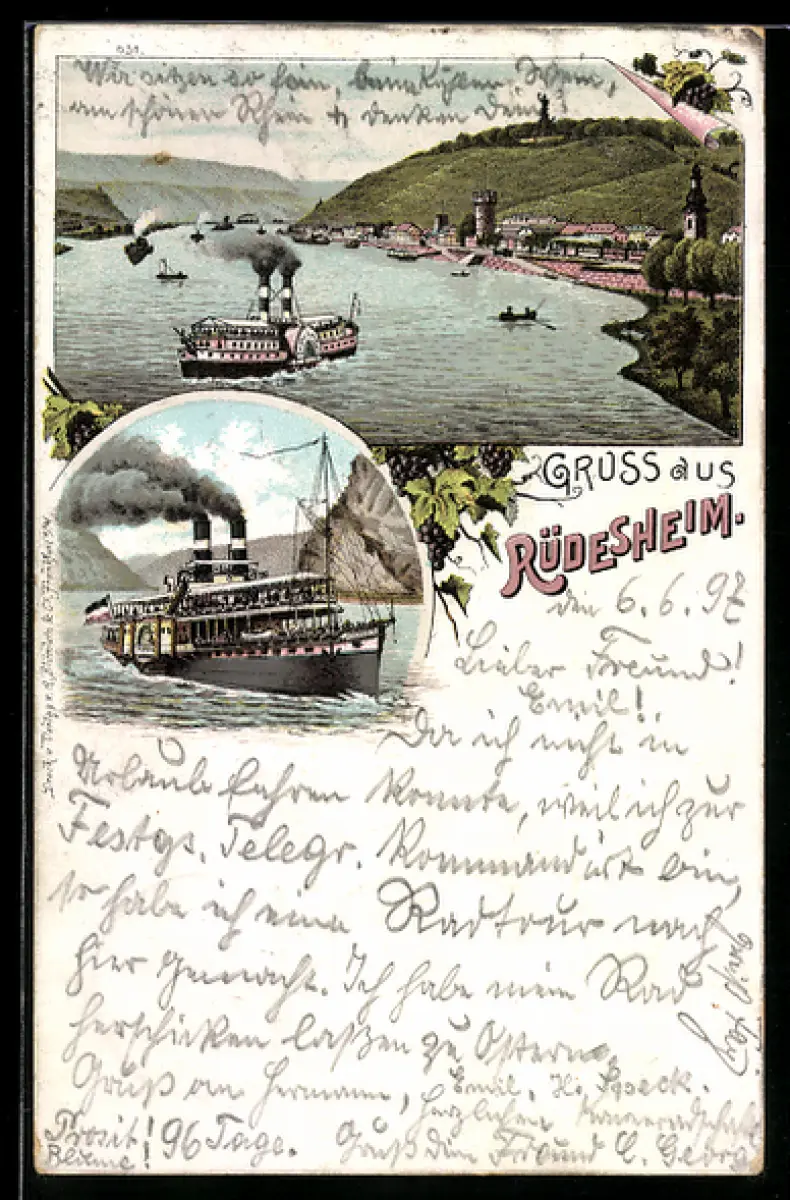 631.
Wir sitzen so fein, beim Wein,
am schönen Rhein & denken Dein!
GRUSS aus
RÜDESHEIM.
den 6. 6. 97
Lieber Freund!
Emil!
Da ich nicht in
Urlaub fahren konnte, weil ich zur
Festgs. Telegr. kommandirt bin,
so habe ich eine Radtour nach
hier gemacht. Ich habe mein Rad
herschicken laßen zu Ostern.
Gruß an Hermann, Emil,
herzlichen
Prosit! 96 Tage. Gruß Dein Freund C. Georg
Blume!